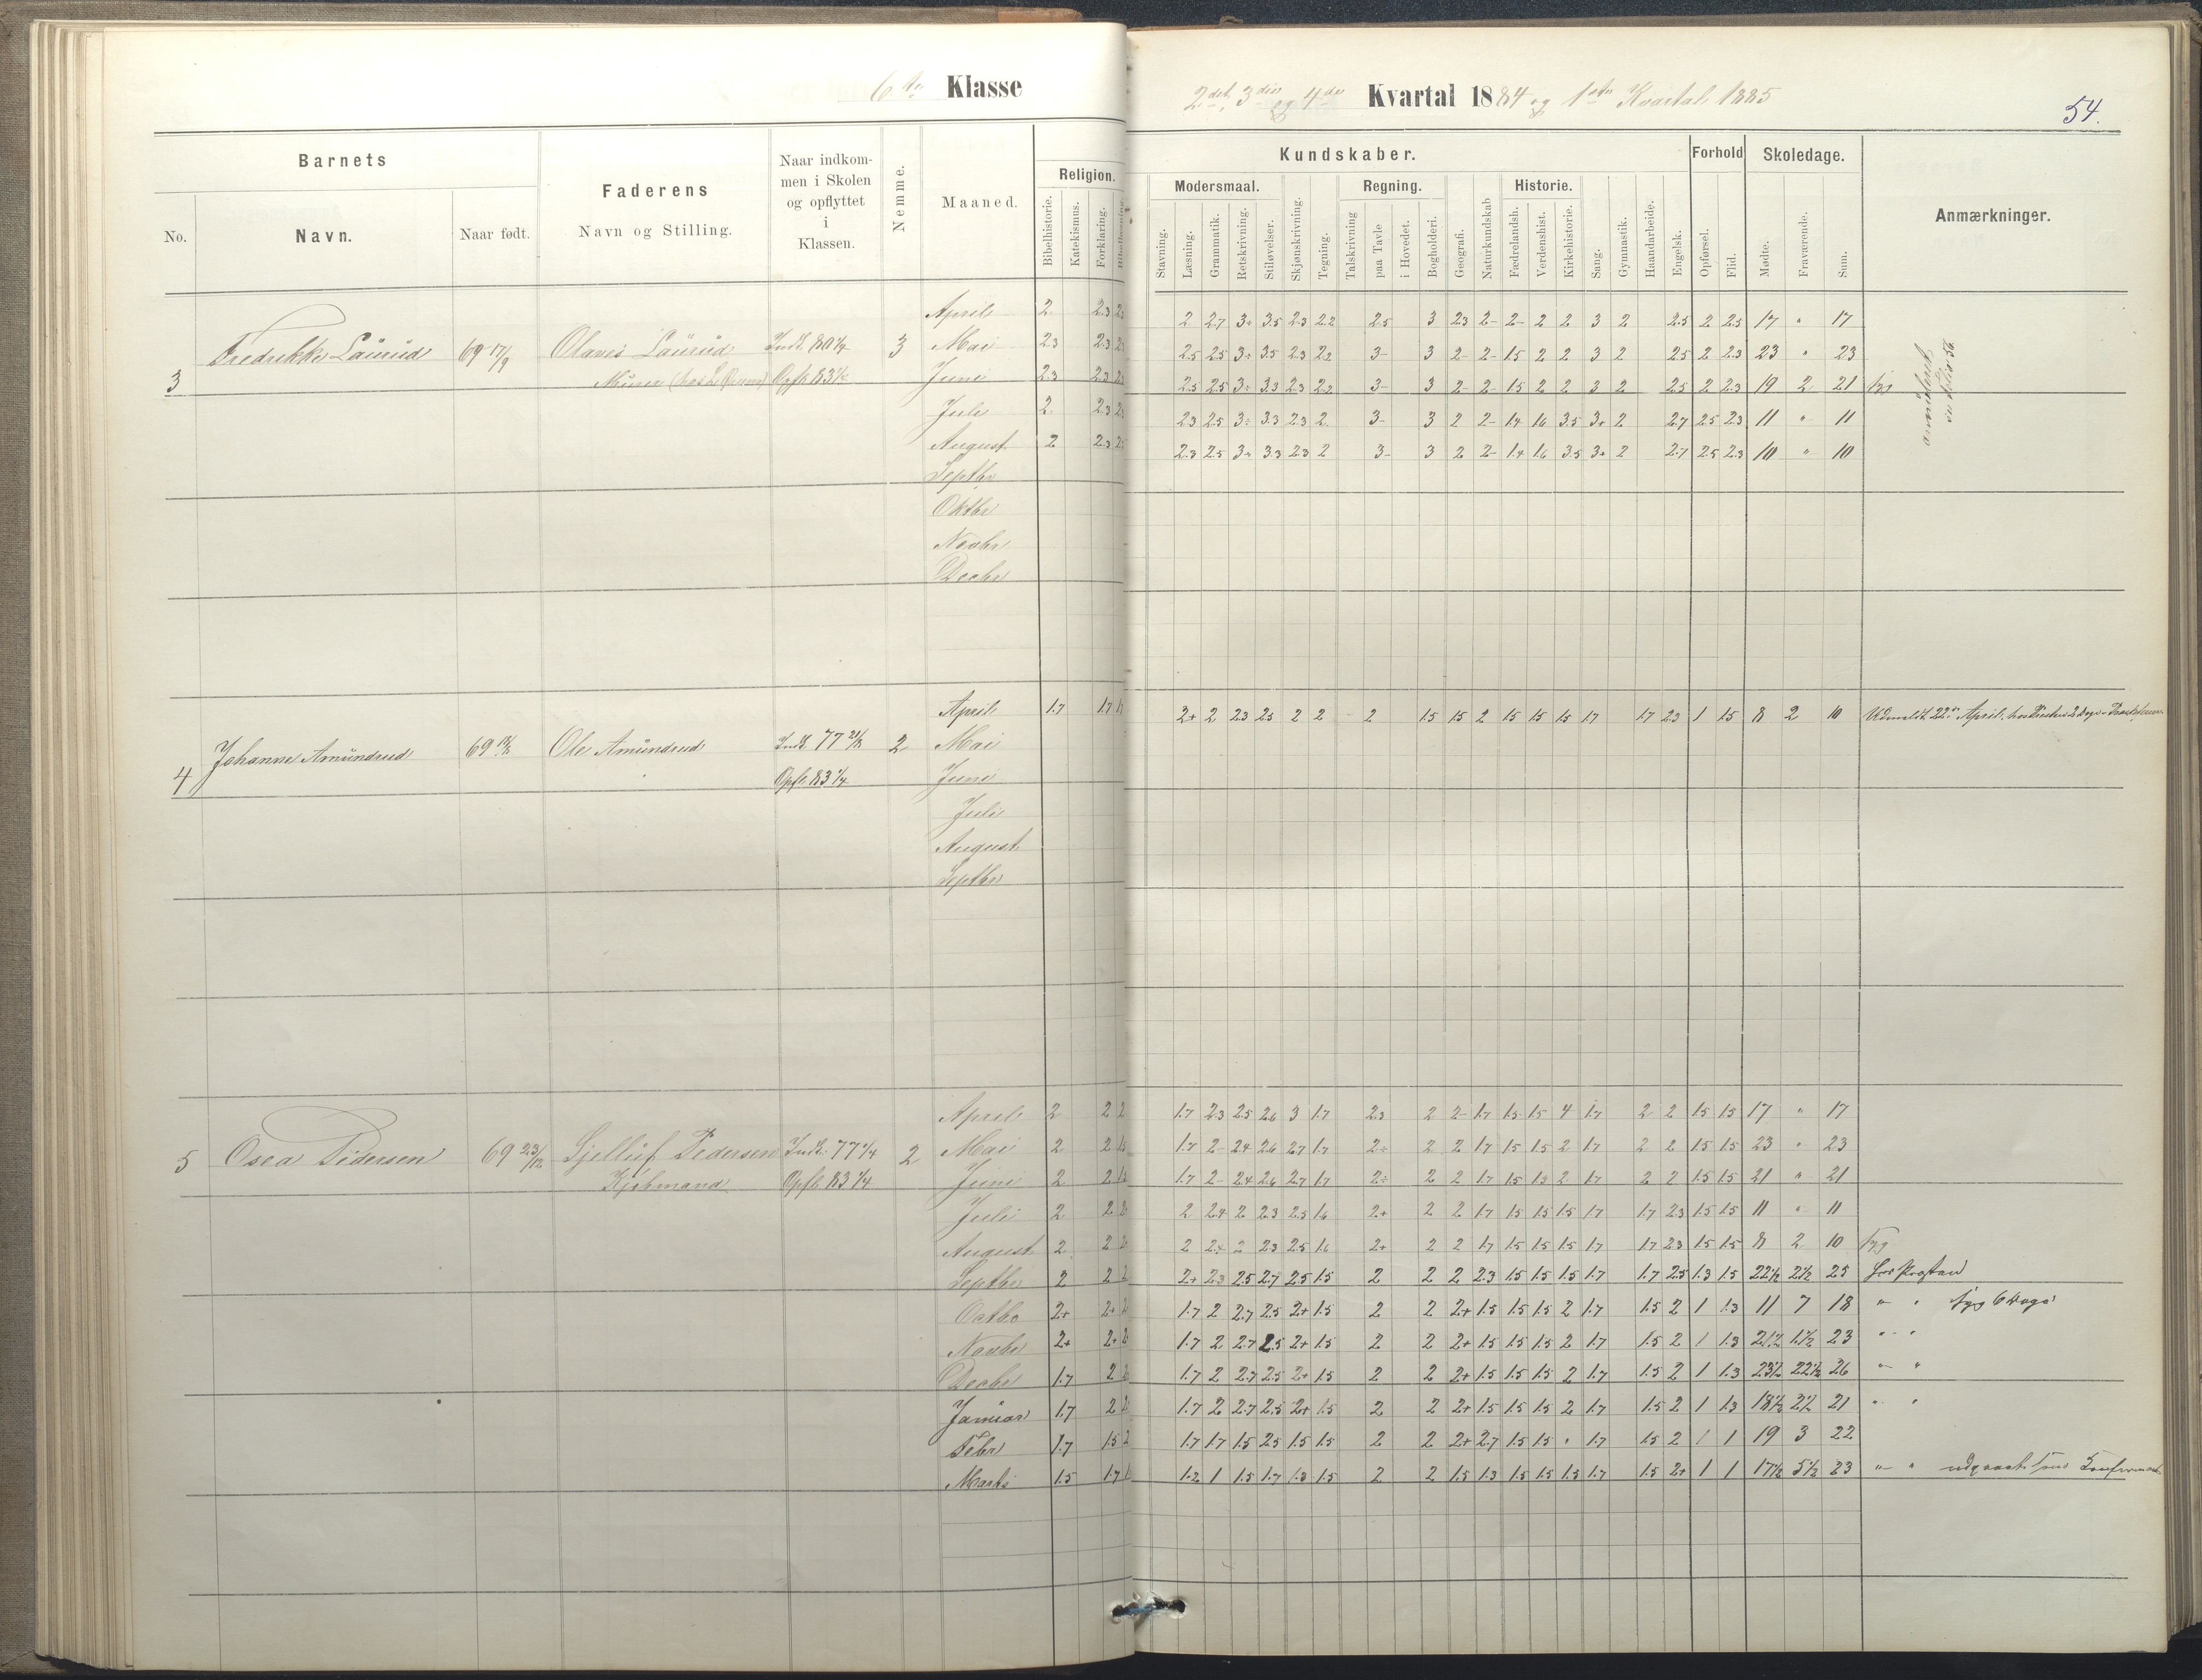 6te Klasse
2det, 3die og 4de Kvartal 1884 og 1ste Kvartal 1885
54.
Barnets
No.
Navn.
Naar født.
Faderens
Navn og Stilling.
Naar indkom-
men i Skolen
og opflyttet
i
Klassen.
Nemme.
Maaned.
Religion.
Bibelhistorie.
Katekismus.
Forklaring.
Kundskaber.
Modersmaal.
Stavning.
Læsning.
Grammatik.
Retskrivning.
Stiløvelser.
Skjønskrivning.
Tegning.
Regning.
Talskrivning
paa Tavle
i Hovedet.
Bogholderi.
Geografi.
Naturkundskab
Historie.
Fædrelandsh.
Verdenshist.
Kirkehistorie.
Sang.
Gymnastik.
Haandarbeide.
Engelsk.
Forhold
Opførsel.
Flid.
Skoledage.
Mødte.
Fraværende.
Sum.
Anmærkninger.
3 Fredrikke Laurud 69 17/9 Olaves Laurud Indk. 80 3
Murer Opfl. 83
April 2 2.3 2 2.7 3÷ 3.5 2.3 2.2 2.5 3 2.3 2- 2- 2 2 3 2 2.5 2 2.5 17 " 17
Mai 2.3 2.3 2.5 2.5 3÷ 3.5 2.3 2.2 3- 3 2- 2- 1.5 2 2 3 2 2.5 2 2.3 23 " 23
Juni 2.3 2.3 2.5 2.5 3÷ 3.3 2.3 2.2 3- 3 2- 2- 1.5 2 2 3 2 2.5 2 2.3 19 2 21 syg
Juli 2 2.3 2.3 2.5 3÷ 3.3 2.3 2 3- 3 2 2- 1.4 1.6 3.5 3+ 2 2.7 2.5 2.3 11 " 11
August 2 2.3 2.3 2.5 3÷ 3.3 2.3 2 3- 3 2 2- 1.4 1.6 3.5 3+ 2 2.7 2.5 2.3 10 " 10
Septbr
Oktbr
Novbr
Decbr
4 Johanne Amundrud 69 Ole Amundrud Indk. 77 2
Opfl. 83 1/4
April 1.7 1.7 2+ 2 2.3 2.5 2 2 2 1.5 1.5 2 1.5 1.5 1.5 1.7 1.7 2.3 1 1.5 8 2 10 Udmeldt 22de April
Mai
Juni
Juli
August
Septbr
5 Osea Pedersen 69 23/12 Gjelluf Pedersen Indk. 77 1/4 2
Kjøbmand Opfl. 83 1/4
April 2 2 1.7 2.3 2.5 2.6 3 1.7 2.3 2 2- 1.7 1.5 1.5 4 1.7 2 2 1.5 1.5 17 " 17
Mai 2 2 1.7 2- 2.4 2.6 2.7 1.7 2÷ 2 2 1.7 1.5 1.5 2 1.7 2 2 1.5 1.5 23 " 23
Juni 2 2 1.7 2- 2.4 2.6 2.7 1.7 2÷ 2 2 1.7 1.5 1.3 2 1.7 2 2 1.5 1.5 21 " 21
Juli 2 2 2 2.4 2 2.3 2.5 1.6 2+ 2 2 1.7 1.5 1.5 1.5 1.7 1.7 2.3 1.5 1.5 11 " 11
August 2 2 2 2 2.3 2.5 1.6 2+ 2 2 1.7 1.5 1.5 1.5 1.7 1.7 2.3 1.5 1.5 8 2 10 Syg
Septbr 2 2 2+ 2.3 2.5 2.7 2.5 1.5 2 2 2 2.3 1.5 1.5 1.5 1.7 1.7 2.5 1.3 1.5 22½ 2½ 25 hos Provsten
Octbr 2+ 2+ 1.7 2 2.7 2.5 2+ 1.5 2 2 2+ 1.5 1.5 1.5 2 1.7 1.5 2 1 1.3 11 7 18 " " syg 6 Dage
Novbr 2+ 2+ 1.7 2 2.7 2.5 2+ 1.5 2 2 2+ 1.5 1.5 1.5 2 1.7 1.5 2 1 1.3 21½ 1½ 23 " "
Decbr 1.7 2 1.7 2 2.7 2.5 2+ 1.5 2 2 2+ 1.5 1.5 1.5 2 1.7 1.5 2 1 1.3 23½ 2½ 26 " "
Januar 1.7 2 1.7 2 2.7 2.5 2+ 1.5 2 2 2+ 1.5 1.5 1.5 2 1.7 1.5 2 1 1.3 18½ 2½ 21 " "
Febr 1.7 1.5 1.7 1.7 1.5 2.5 1.5 1.5 2 2 2+ 2.7 1.5 1.5 " 1.7 1.5 2 1 1 19 3 22
Marts 1.5 1.7 1.2 1 1.5 1.7 1.3 1.5 2 2 1.5 1.3 1.5 1.5 1.3 1.7 1.5 2+ 1 1 17½ 5½ 23 " "